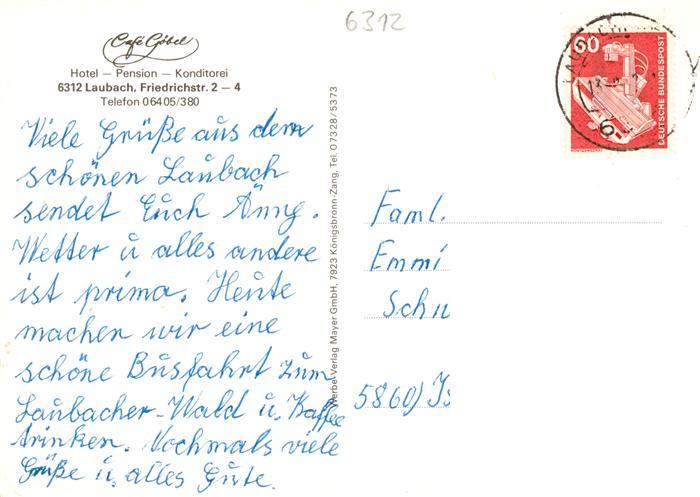 6312
Café Göbel
Hotel – Pension – Konditorei
6312 Laubach, Friedrichstr. 2 – 4
Telefon 06405/380
Viele Grüße aus dem
schönen Laubach
sendet Euch Änng.
Wetter u alles andere
ist prima. Heute
machen wir eine
schöne Busfahrt zum
Laubacher-Wald u. Kaffee
trinken. Nochmals viele
Grüße u. alles Gute.
Werbe-Verlag Mayer GmbH, 7923 Königsbronn-Zang, Tel. 07328/5373
60
DEUTSCHE BUNDESPOST
Faml.
Emmi
Schu
5860) Is